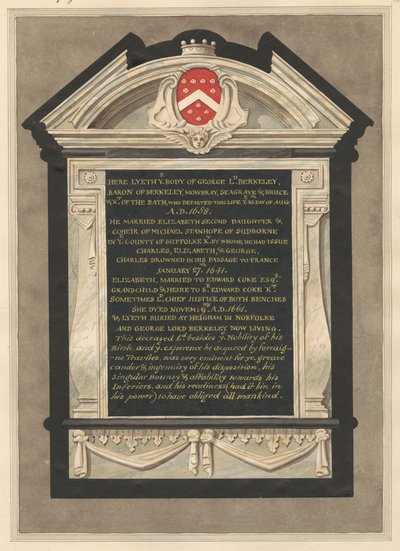 HERE LYETH Yᴱ BODY OF GEORGE Lᴰ BERKELEY,
BARON OF BERKELEY, MOWBRAY, SEAGRAVE & BRUCE
& Kᵀ OF THE BATH, WHO DEPARTED THIS LIFE Yᴱ DAY OF AUG
A.D. 1658.
HE MARRIED ELIZABETH SECOND DAUGHTER &
COHEIR OF MICHAEL STANHOPE OF SUDBORNE
IN Yᴱ COUNTY OF SUFFOLKE Kᵀ BY WHOME HE HAD ISSUE
CHARLES, ELIZABETH, & GEORGE.
CHARLES DROWNED IN HIS PASSAGE TO FRANCE
JANUARY 27ᵀᴴ 1641.
ELIZABETH, MARRIED TO EDWARD COKE ESQᴿ
GRANDCHILD & HEIRE TO Sᴿ EDWARD COKE Kᵀ
SOMETIMES Lᴰ CHIEF JUSTICE OF BOTH BENCHES
SHE DYED NOVEM: 9ᵀᴴ A.D. 1661.
& LYETH BURIED AT HEIGHAM IN NORFOLKE
AND GEORGE LORD BERKELEY NOW LIVING.
This deceased Lᵈ besides yᵉ Nobility of his
Birth, and yᵉ experence he acquired by forraig-
-ne Traviles, was very eminent for yᵉ greate
candor & ingenuity of his disposition, his
Singular Bounty & affability towards his
Inferiors, and his readiness (had it bin in
his power) to have obliged all mankind.